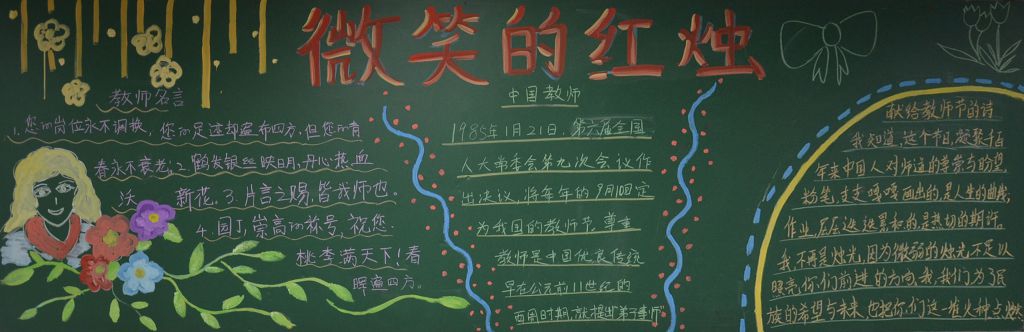 微笑的红烛
教师名言
1.您的岗位永不调换，您的足迹却遍布四方，但您的青
春永不衰老；2.鹤发银丝映日月，丹心热血
沃 新花。3.片言之赐，皆我师也。
4.园丁，崇高的称号，祝您
桃李满天下！春
晖遍四方。
中国教师
1985年1月21日，第六届全国
人大常委会第九次会议作
出决议，将每年的9月10日定
为我国的教师节。尊重
教师是中国优良传统
早在公元前11世纪的
西周时期，就提出"弟子事师"
献给教师节的诗
我知道，这个节日，凝聚
年来中国人对师道的尊崇与盼望
粉笔，支支 画出的是人生的曲线，
作业，层层 累积的是热切的期许。
我不再是烛光，因为微弱的烛光不足以
照亮你们前进的方向，我 我们为了民
族的希望与未来，也把你们这一堆火种点燃